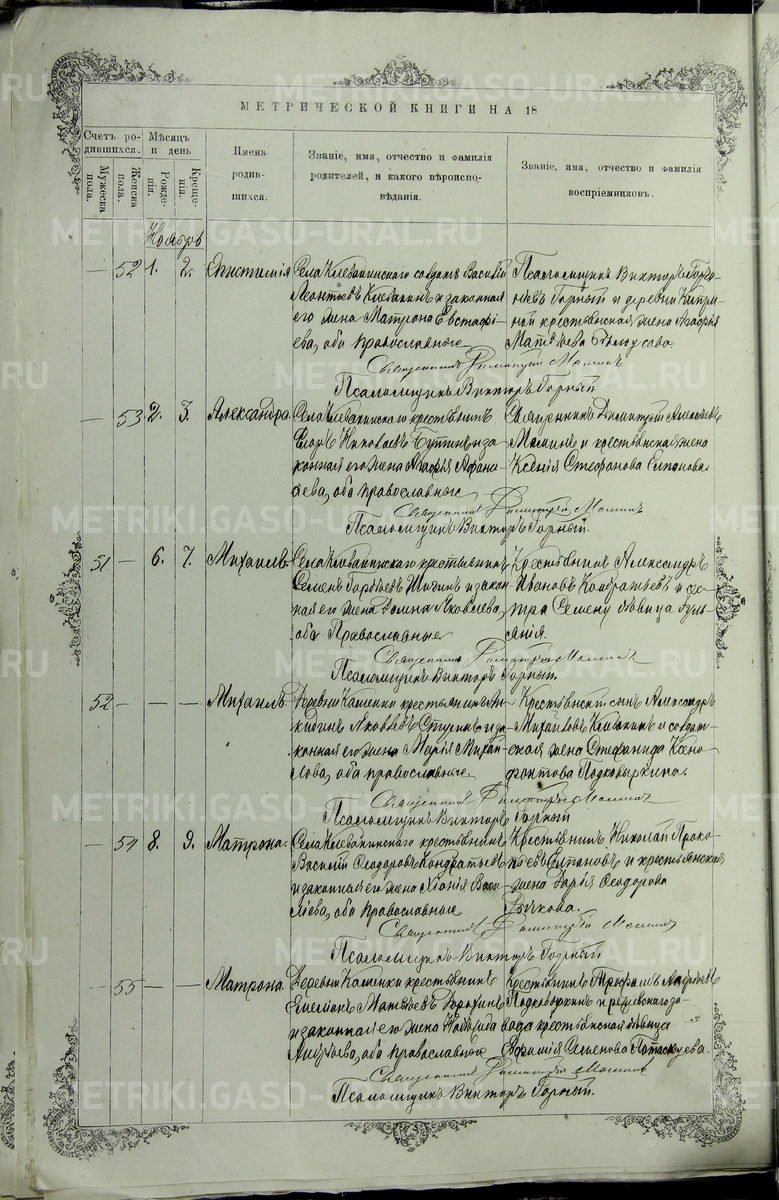 МЕТРИЧЕСКОЙ КНИГИ НА 18
Счетъ ро-
дившихся.
Мѣсяцъ
и день
Мужеска
пола.
Женска
пола.
Рожде-
нія.
Креще-
нія.
Имена
родив-
шихся.
Званіе, имя, отчество и фамилія
родителей, и какого вѣроиспо-
вѣданія.
Званіе, имя, отчество и фамилія
воспріемниковъ.
Ноябрь
— 52 1. 2. Епистимія
Села Клевакинскаго солдатъ Василій
Леонтьевъ Клевакинъ и законная
его жена Матрона Евстафі-
ева, оба православные
Псаломщикъ Викторъ
Горный и деревни
крестьянская жена Агафья
Матвѣева Бѣлоусова.
Священникъ Димитрій Маминъ
Псаломщикъ Викторъ Горный
— 53 2. 3. Александра.
Села Клевакинскаго крестьянинъ
Николаевъ и за-
конная его жена Агафія Афана-
сіева, оба православные
Священникъ Димитрій Алексѣевъ
Маминъ и крестьянская жена
Ксенія Стефанова
Священникъ Димитрій Маминъ
Псаломщикъ Викторъ Горный.
51 — 6. 7. Михаилъ.
Села Клевакинскаго крестьянинъ
Семенъ Гордѣевъ и закон-
ная его жена Домна Яковлева,
оба Православные
Крестьянинъ Александръ
Ивановъ Кондратьевъ и сес-
тра Семену дѣвица Іулі-
анія.
Священникъ Димитрій Маминъ
Псаломщикъ Викторъ Горный.
52 — — — Михаилъ.
Деревни Каменки крестьянинъ Ни-
Яковлевъ и за-
конная его жена Марія Михай-
лова, оба православные.
Крестьянскій сынъ Александръ
Михайловъ Клевакинъ и солдат-
ская жена Стефанида Ксено-
фонтова Подковыркина.
Священникъ Димитрій Маминъ
Псаломщикъ Викторъ Горный
— 54 8. 9. Матрона.
Села Клевакинскаго крестьянинъ
Василій Ѳеодоровъ Кондратьевъ
и законная его жена Хіонія Васи-
ліева, оба православные
Крестьянинъ Николай Проко-
пьевъ и крестьянская
жена Дарія Ѳеодорова
Рычкова.
Священникъ Димитрій Маминъ
Псаломщикъ Викторъ Горный
— 55 — — Матрона.
Деревни Каменки крестьянинъ
Емеліанъ Матвѣевъ
и законная его жена
Андреева, оба православные
Крестьянинъ Трофимъ Андреевъ
Подковыркинъ и режевскаго за-
вода крестьянская дѣвица
Евфимія Семенова Патаскуева.
Священникъ Димитрій Маминъ
Псаломщикъ Викторъ Горный.
METRIKI.GASO-URAL.RU